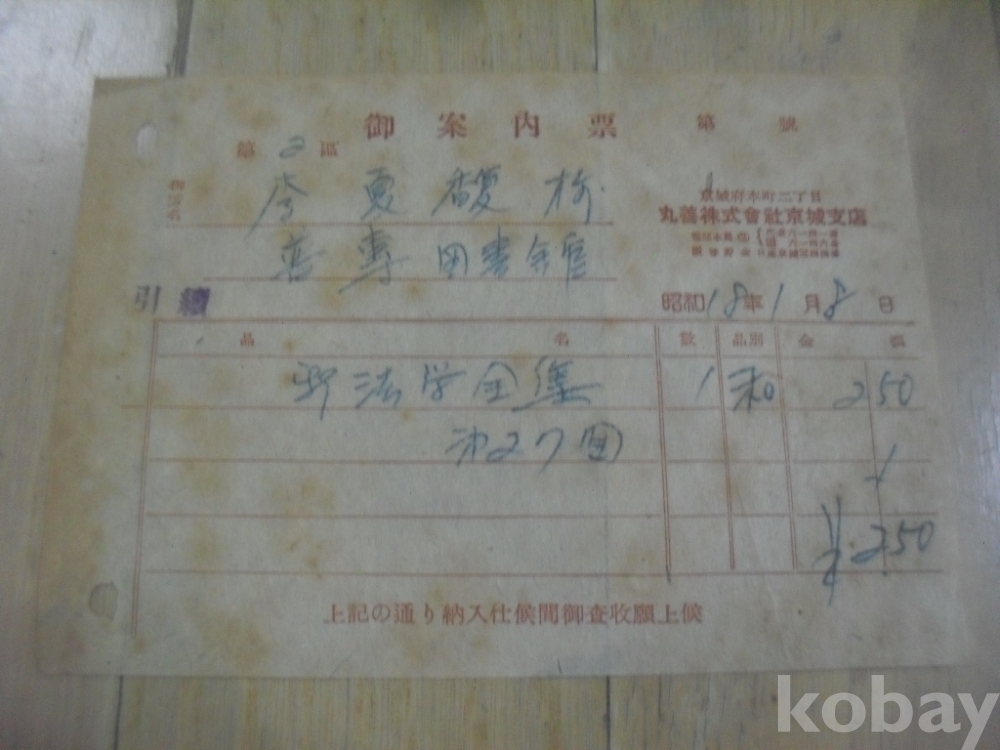 御案内票
第 號
第2區
李 夏 馥 様
普專図書館
京城府本町二丁目
丸善株式會社京城支店
引續
昭和18年1月8日
品 名 數 品別 金 額
法学全集 1 和 250
第27回
¥250
上記の通り納入仕候間御査收願上候
kobay